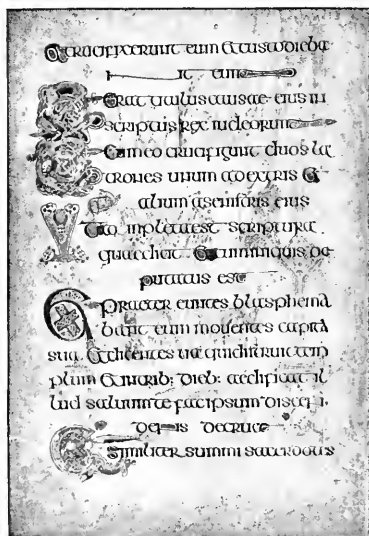 et crucifixerunt eum et custodieba
nt eum
Erat titulus causae eius in
scriptus rex iudeorum
Et cum eo crucifigunt duos la
trones unum a dextris et
alium a sinistris eius
impleta est scriptura
quae dicit et cum iniquis de
putatus est
Et praetereuntes blasphema
bant eum mouentes capita
sua et dicentes ua qui distruit tem
plum et in trib: dieb: aedificat il
lud saluum te fac ipsum
de cruce
Et similiter summi sacerdotes